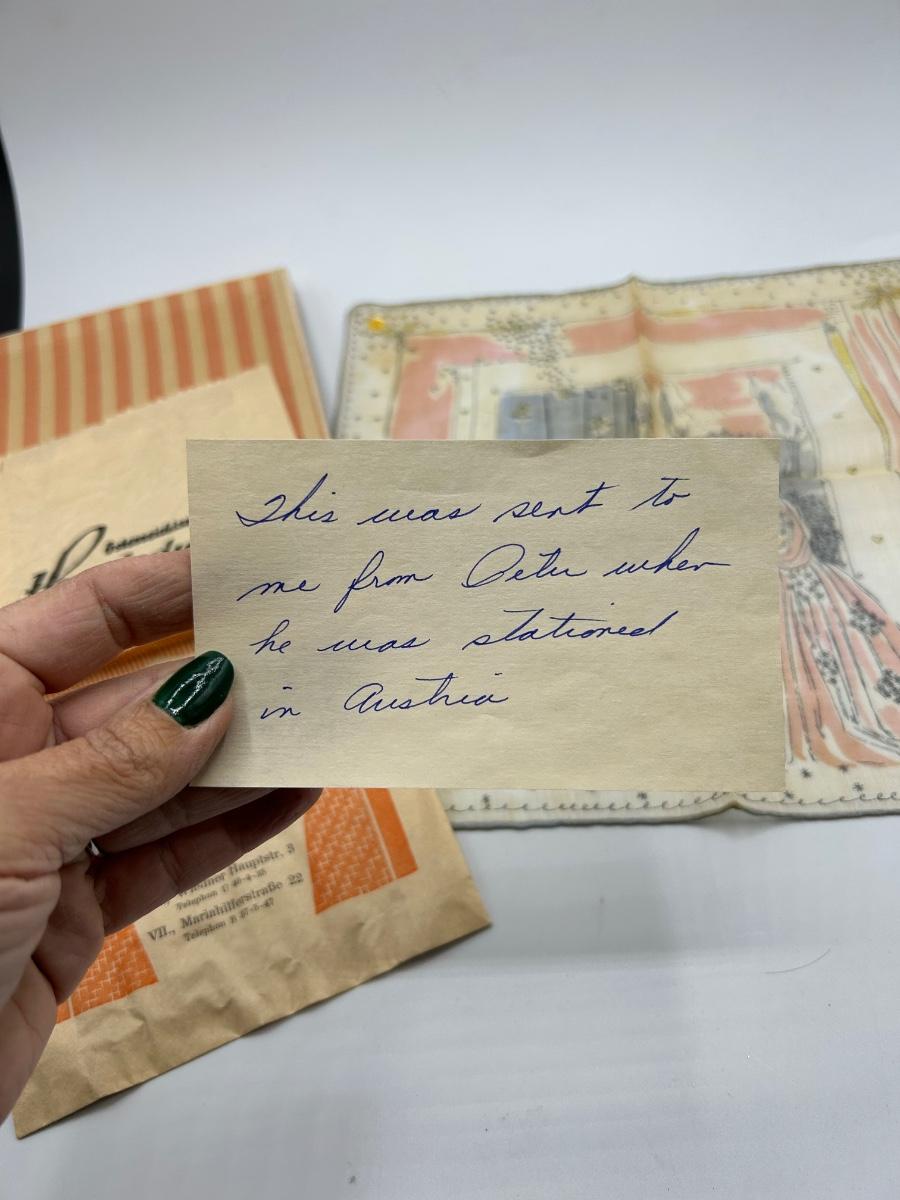 This was sent to
me from Peter when
he was stationed
in Austria
Wiedner Hauptstr. 3
Telephon U 46-4-35
VII., Mariahilferstraße 22
Telephon B 37-5-47